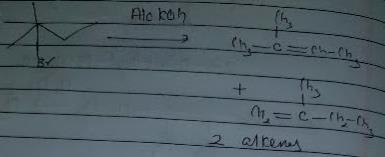 Alc KOH
CH3
CH3—C=CH—CH3
Br
+
CH3
CH2=C—CH2—CH3
2 alkenes